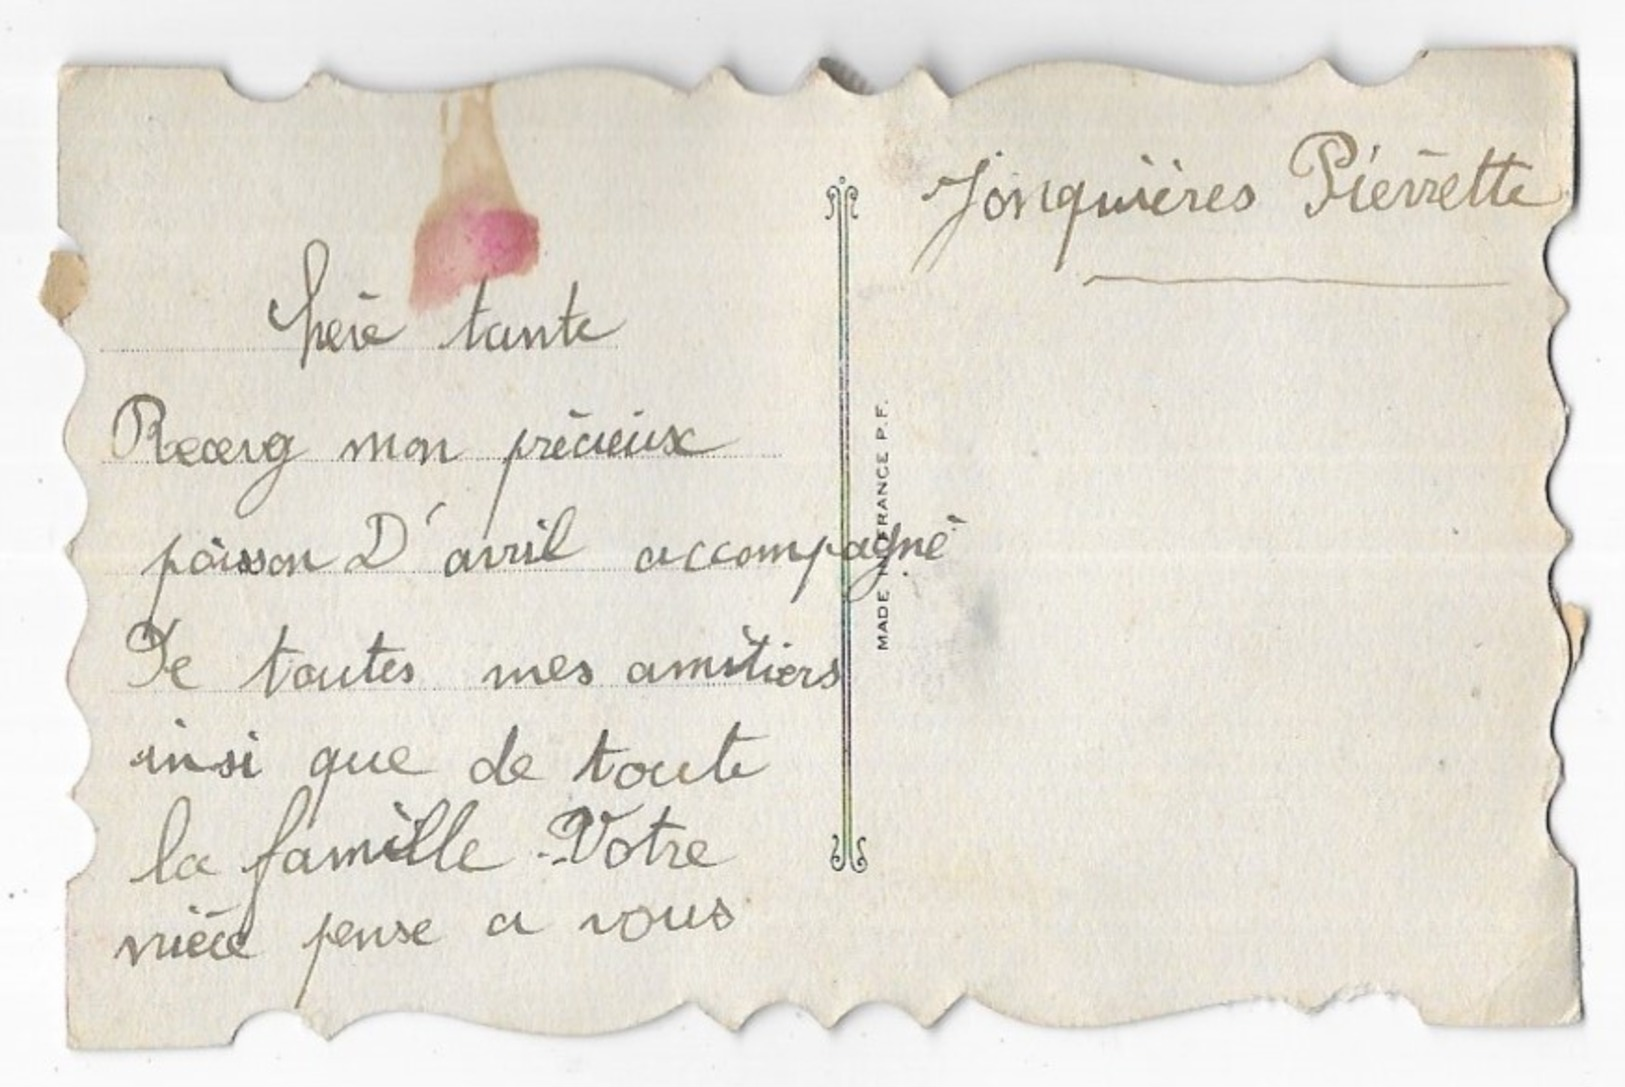 Chère tante
Recevez mon précieux
poisson D'avril accompagné
De toutes mes amitiers
insi que de toute
la famille - Votre
nièce pense a vous
Jonquières Pierrette
MADE IN FRANCE P.F.